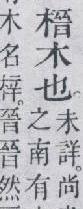 榗木也。未詳。尚
之南有
木名梓。晉晉然